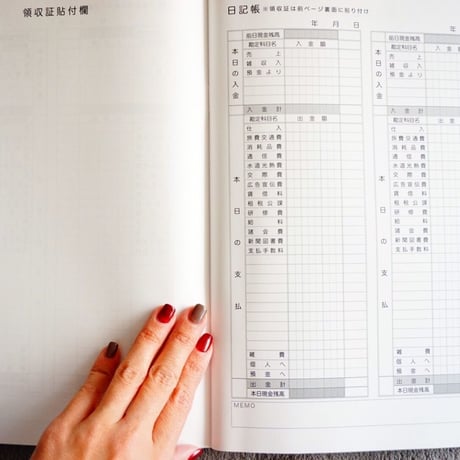 領収証貼付欄
日記帳 ※領収証は前ページ裏面に貼り付け
年 月 日
前日現金残高
勘定科目名 入金額
本日の入金
売上
雑収入
預金より
入金計
勘定科目名 出金額
本日の支払
仕入
旅費交通費
消耗品費
通信費
水道光熱費
交際費
広告宣伝費
賃借料
租税公課
研修費
給料
諸会費
新聞図書費
支払手数料
雑費
個人へ
預金へ
出金計
本日現金残高
MEMO
年
前日現金残高
勘定科目名 入
本日の入金
売上
雑収入
預金より
入金計
勘定科目名 出
本日の支払
仕入
旅費交通費
消耗品費
通信費
水道光熱費
交際費
広告宣伝費
賃借料
租税公課
研修費
給料
諸会費
新聞図書費
支払手数料
雑費
個人へ
預金へ
出金計
本日現金残高